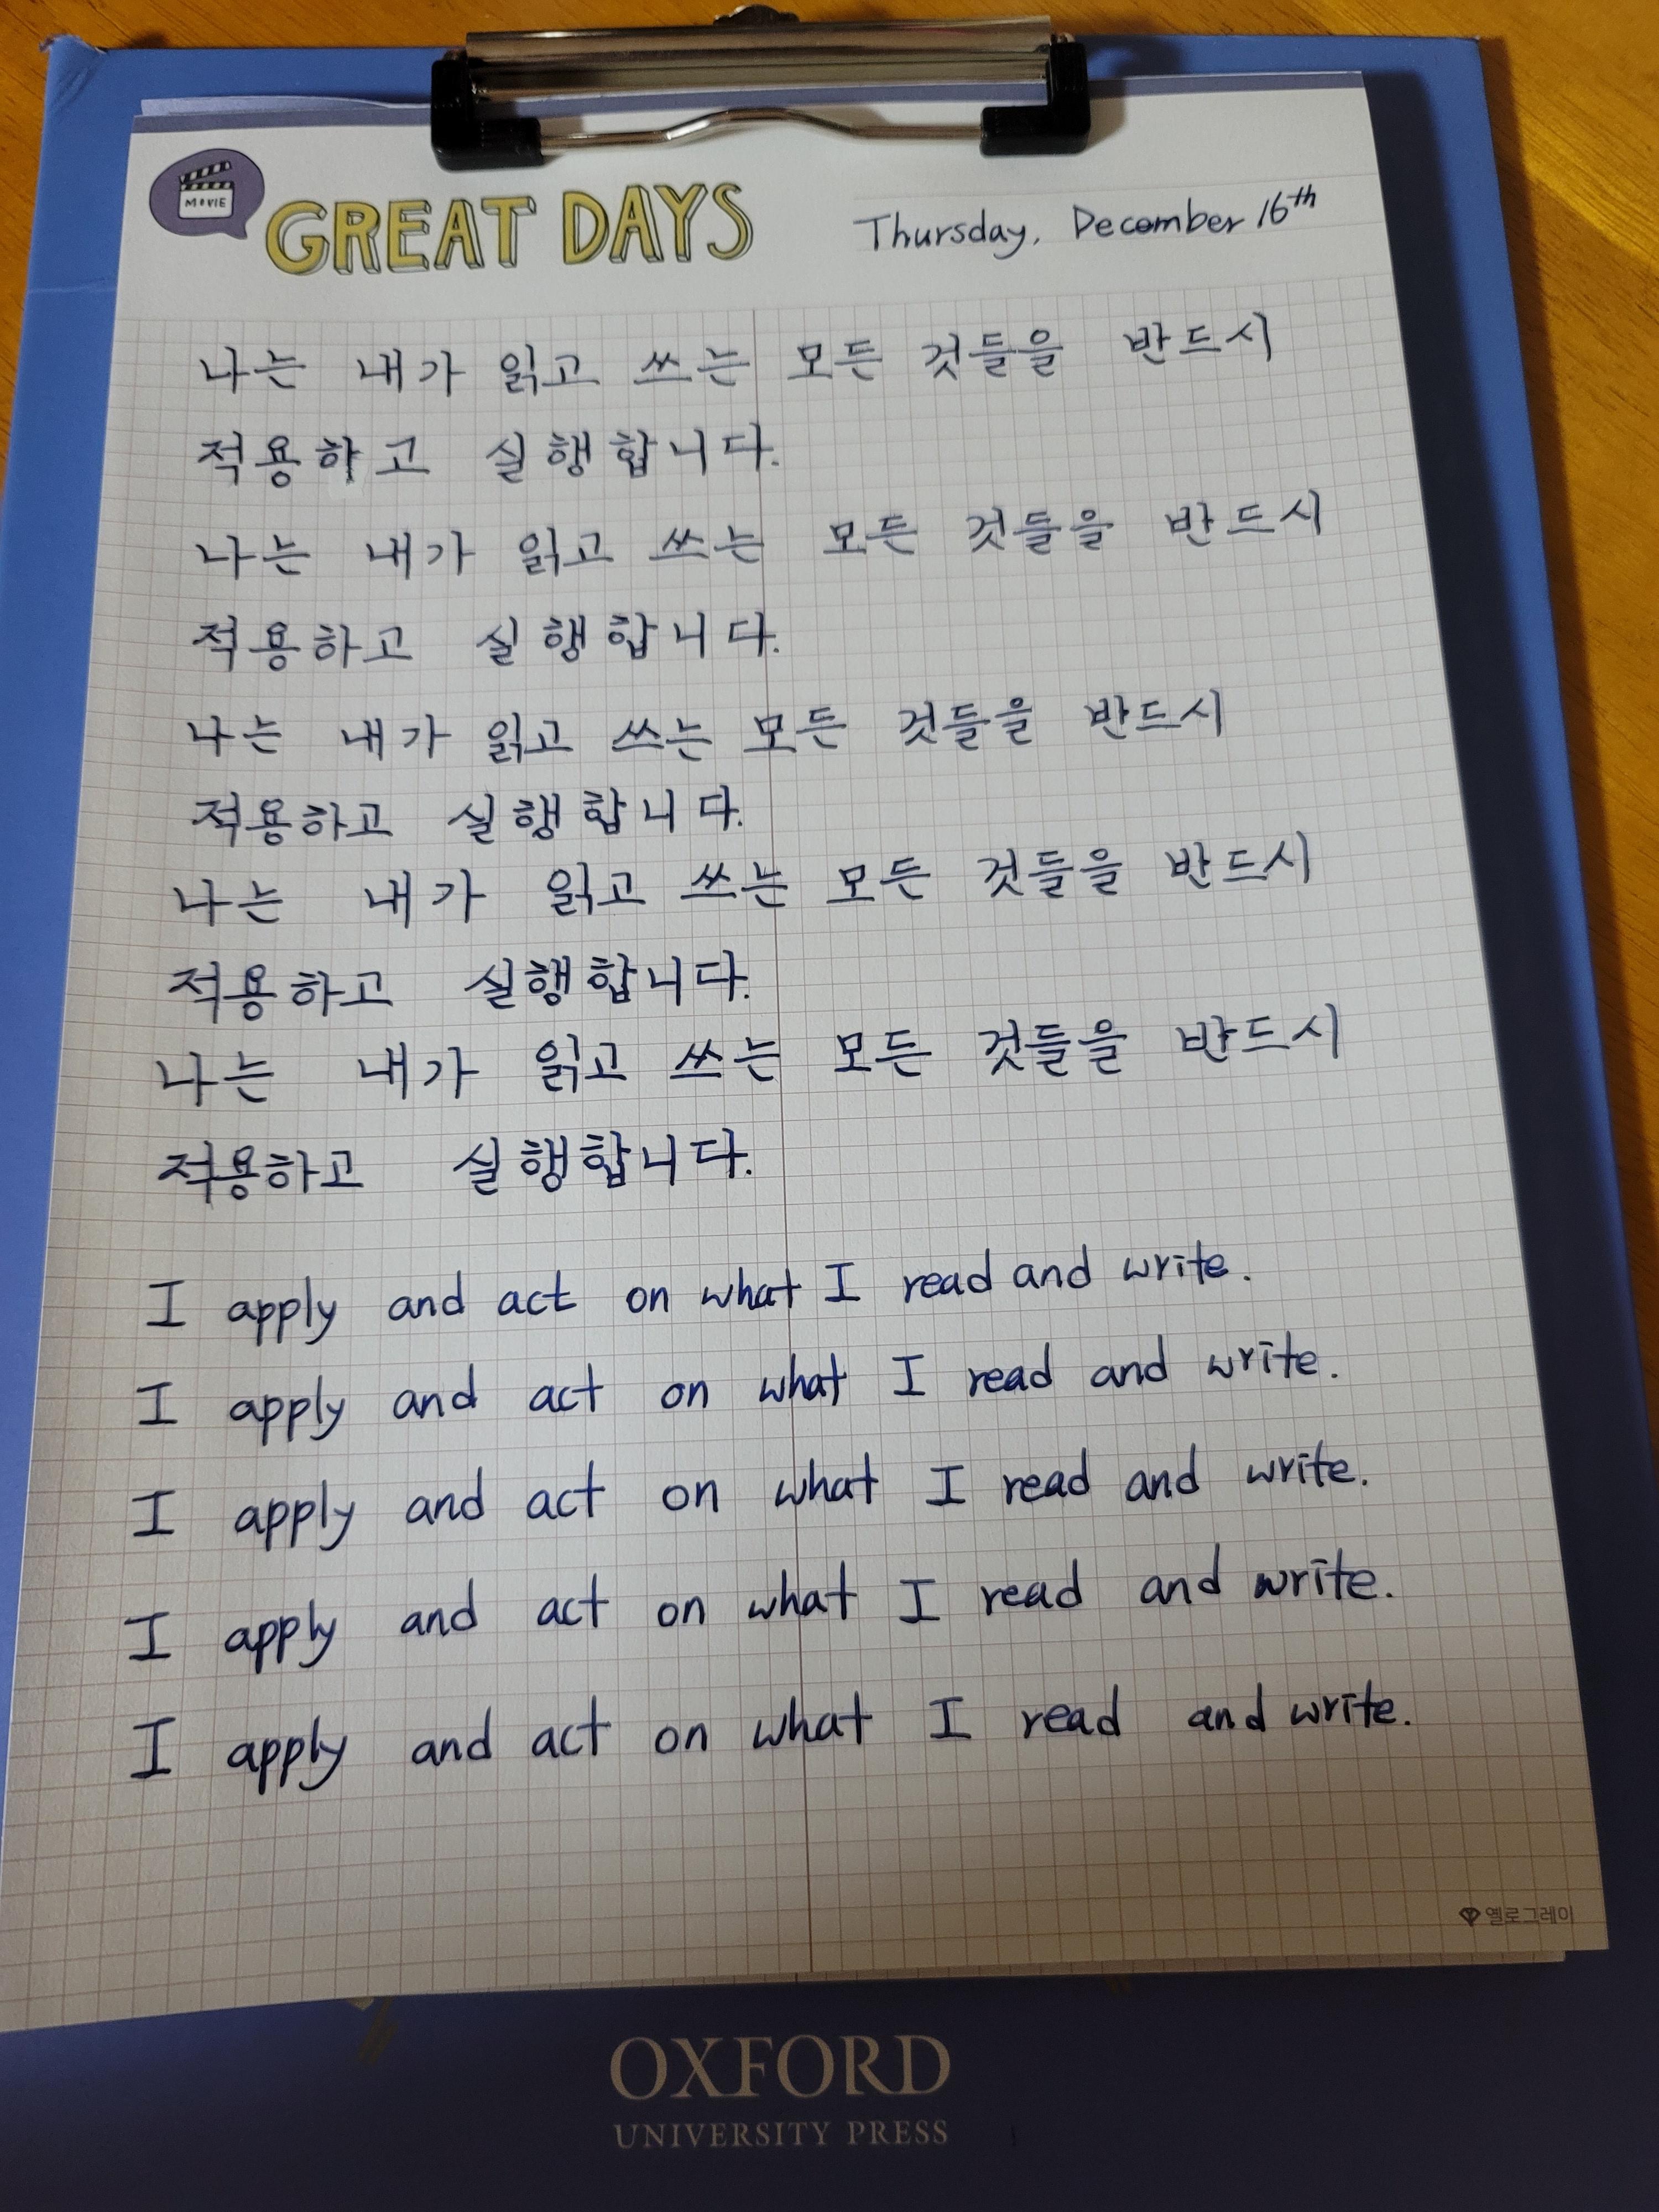 MOVIE
GREAT DAYS
Thursday, December 16th
나는 내가 읽고 쓰는 모든 것들을 반드시
적용하고 실행합니다.
나는 내가 읽고 쓰는 모든 것들을 반드시
적용하고 실행합니다.
나는 내가 읽고 쓰는 모든 것들을 반드시
적용하고 실행합니다.
나는 내가 읽고 쓰는 모든 것들을 반드시
적용하고 실행합니다.
나는 내가 읽고 쓰는 모든 것들을 반드시
적용하고 실행합니다.
I apply and act on what I read and write.
I apply and act on what I read and write.
I apply and act on what I read and write.
I apply and act on what I read and write.
I apply and act on what I read and write.
옐로그레이
OXFORD
UNIVERSITY PRESS